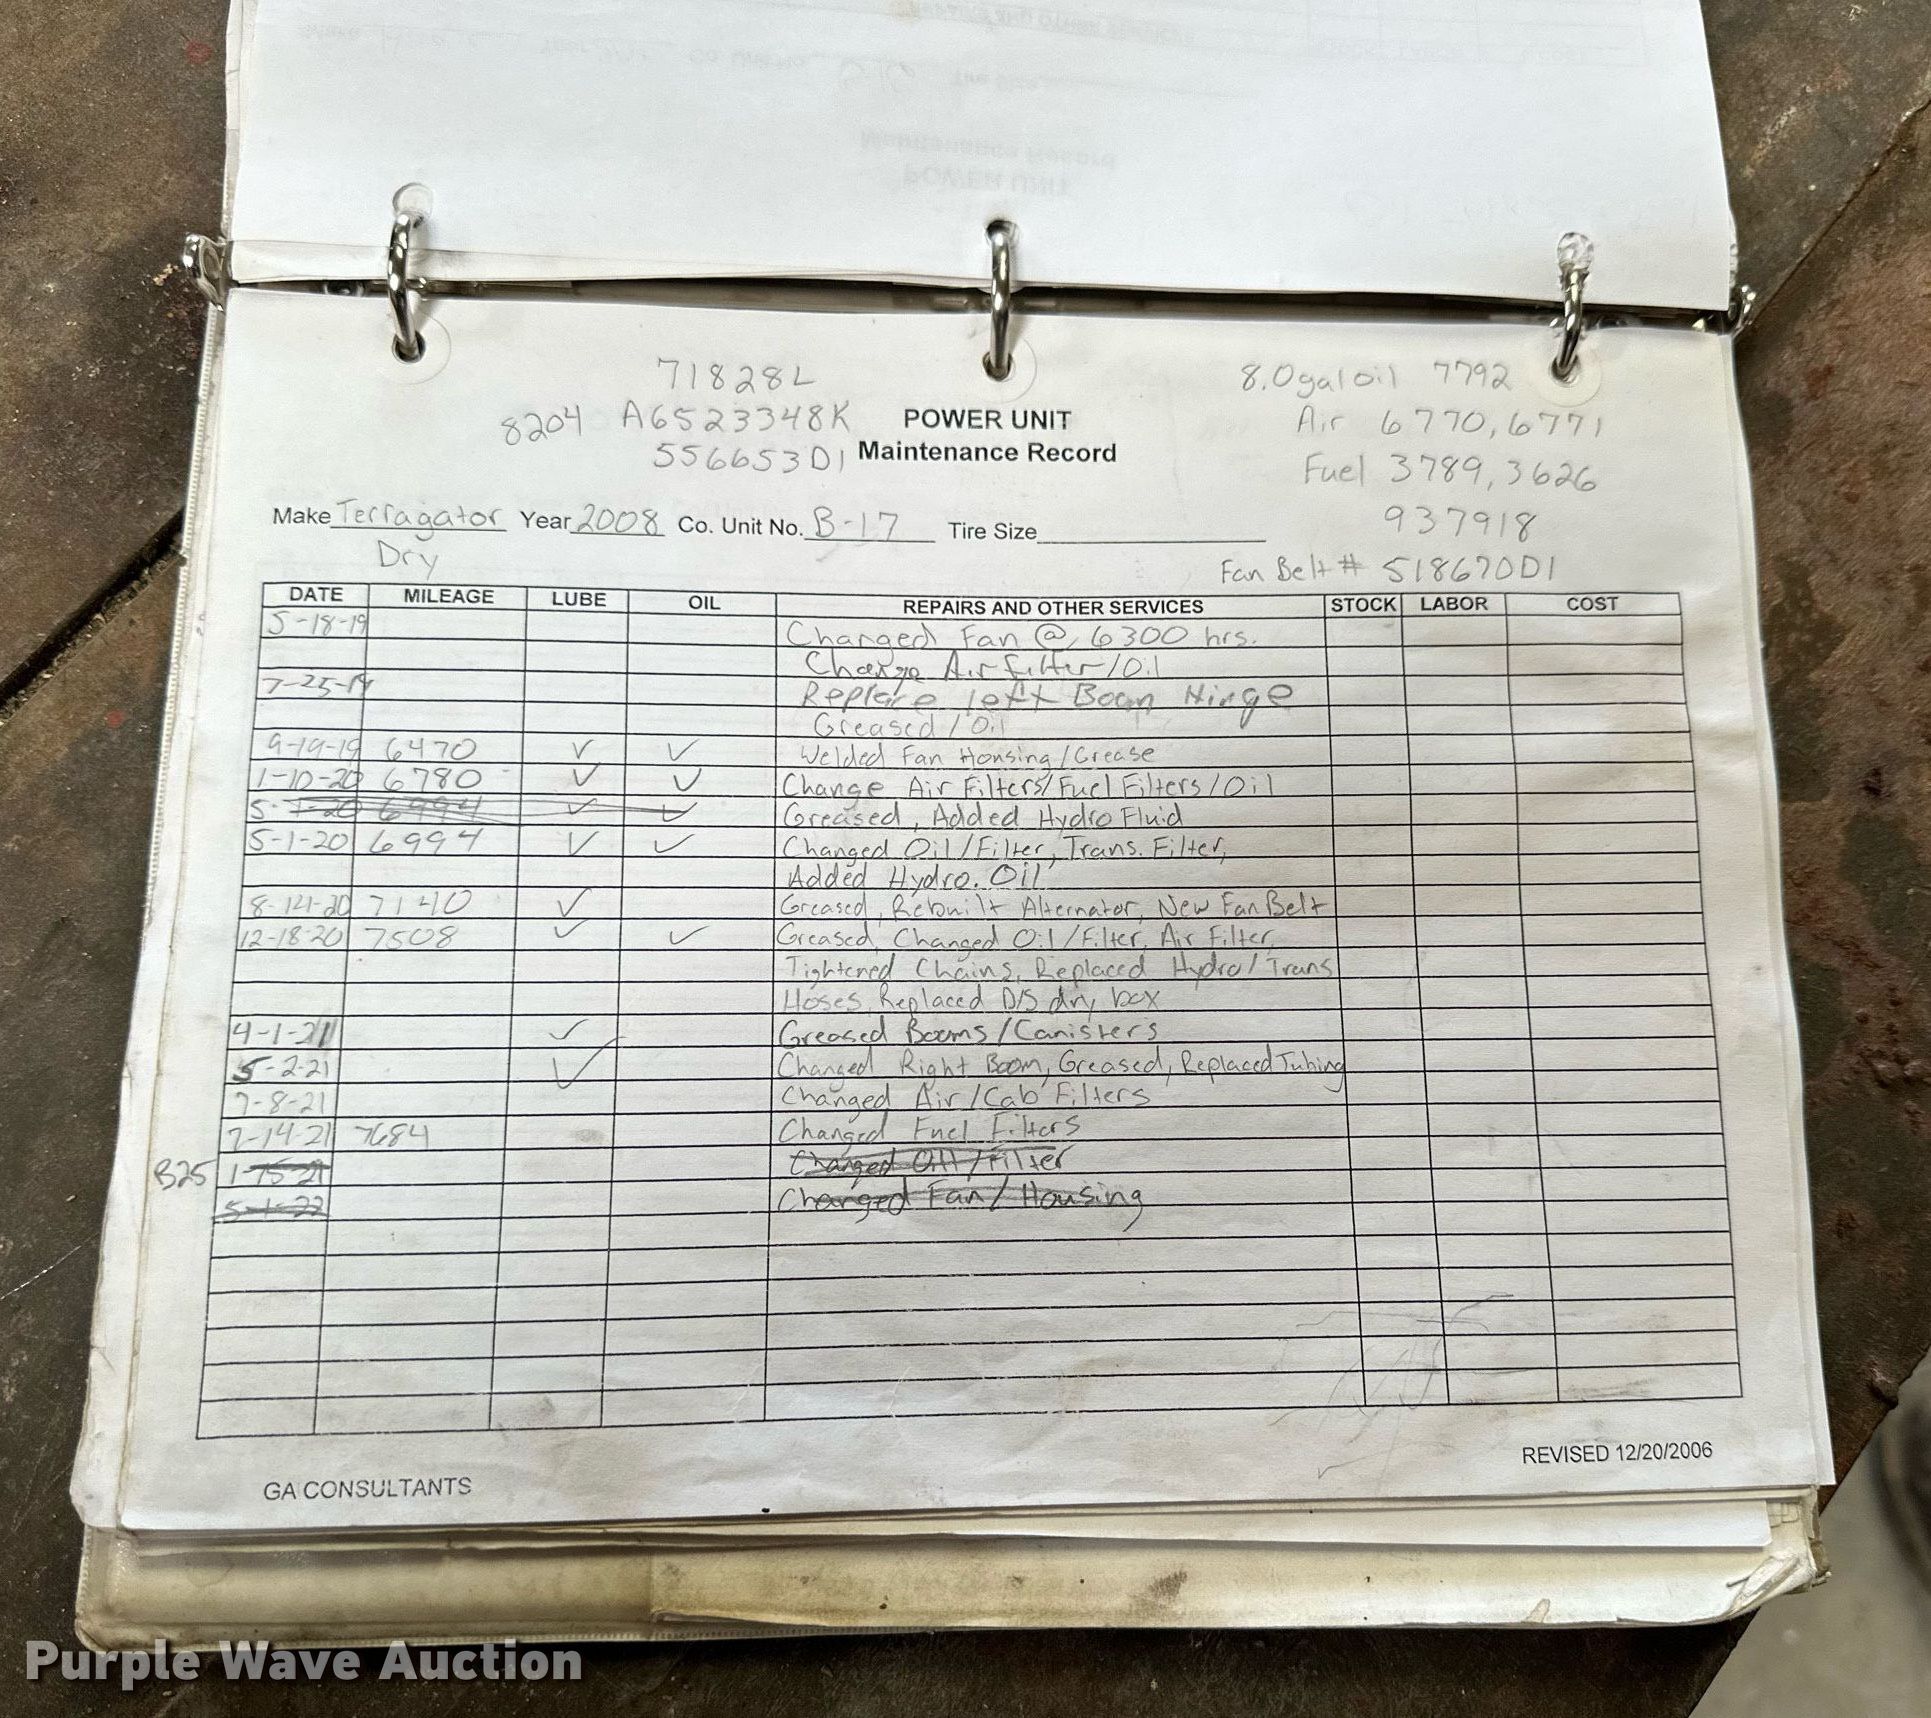 71828L
8204 A6523348K
556653D1
POWER UNIT
Maintenance Record
8.0gal oil 7792
Air 6770, 6771
Fuel 3789, 3626
937918
Make Terragator Year 2008 Co. Unit No. B-17 Tire Size
Dry
Fan Belt # 518670D1
DATE MILEAGE LUBE OIL REPAIRS AND OTHER SERVICES STOCK LABOR COST
5-18-19 Changed Fan @ 6300 hrs.
Change Air filter/Oil
7-25-19 Replace left Boom Hinge
Greased/Oil
9-19-19 6470 ✓ ✓ Welded Fan Housing/Grease
1-10-20 6780 ✓ ✓ Change Air Filters/Fuel Filters/Oil
5-1-20 6994 ✓ ✓ Greased, Added Hydro Fluid
5-1-20 6994 ✓ ✓ Changed Oil/Filter, Trans. Filter,
Added Hydro. Oil
8-14-20 7140 ✓ Greased, Rebuilt Alternator, New Fan Belt
12-18-20 7508 ✓ ✓ Greased, Changed Oil/Filter, Air Filter,
Tightened Chains, Replaced Hydro/Trans
Hoses, Replaced D/S dry box
4-1-21 ✓ Greased Booms/Canisters
5-2-21 ✓ Changed Right Boom, Greased, Replaced Tubing
7-8-21 Changed Air/Cab Filters
7-14-21 7684 Changed Fuel Filters
B25 1-15-21 Changed Oil/Filter
5-1-22 Changed Fan/Housing
GA CONSULTANTS
REVISED 12/20/2006
Purple Wave Auction